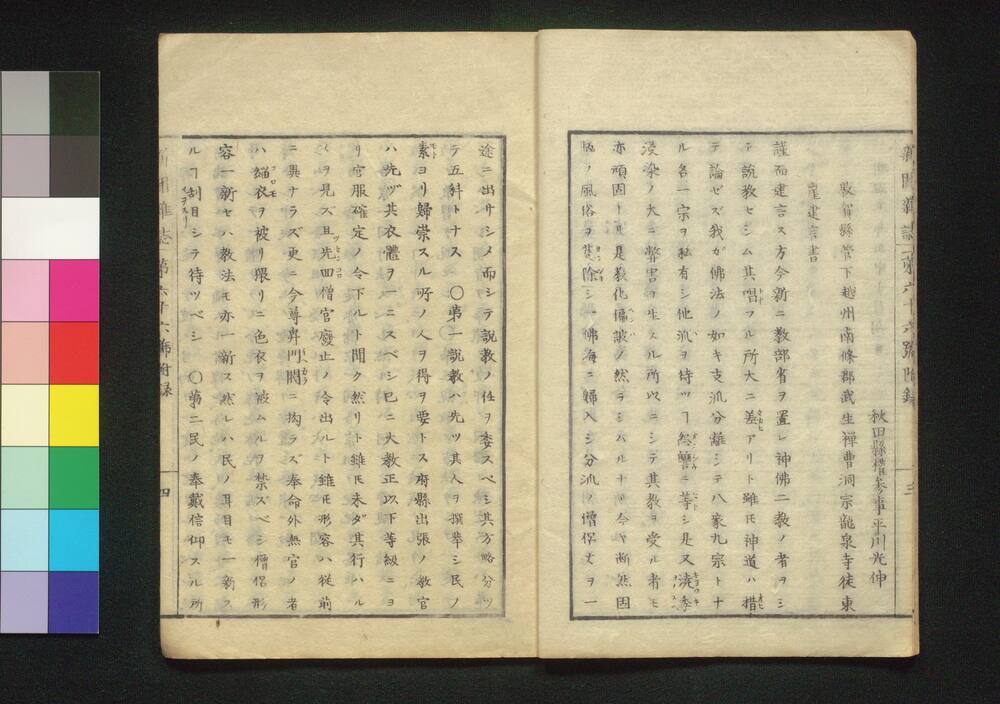 新聞雜誌 第六十六號附録 三
秋田縣權參事平川光伸
敦賀縣管下越州南條郡武生禅曹洞宗龍泉寺徒東
皇建言書
謹而建言ス方今新ニ教部省ヲ置レ神佛二教ノ者ヲシ
テ説教セシム其唱フル所大ニ差アリト雖モ神道ハ措
テ論ゼズ我ガ佛法ノ如キ支派分離シテ八家九宗トナ
ル各一宗ヲ私有シ他派ヲ待ツヿ怨讐ニ等シ是又澆季
浸染ノ大ニ弊害ヲ生スル所以ニシテ其教ヲ受ル者モ
亦頑固トナル是教化偏諛ノ然ラシムル
ノ風俗ヲ掃除シ一佛海ニ歸入シ分派ノ僧侶丈ヲ一
途ニ出サシメ而シテ説教ノ任ヲ委スベシ其方略分ツ
テ五科トナス 〇第一説教ハ先ツ其人ヲ撰挙シ民ノ
素ヨリ歸崇スル所ノ人ヲ得ヲ要トス府縣出張ノ教官
ハ先ヅ其衣體ヲ一ニスベシ已ニ大教正以下等級ニヨ
リ官服確定ノ令下ルト聞ク然リト雖モ未ダ其行ハル
ヽヲ見ズ且先回僧官廢止ノ令出ルト雖モ形容ハ従前
ニ異ナラズ更ニ今尊卑門閥ニ拘ラズ奉命外無官ノ者
ハ緇衣ヲ被リ猥リニ色衣ヲ被ムルヲ禁ズベシ僧侶形
容一新セハ教法モ亦一新ス然レハ民ノ耳目モ一新ス
ルヿ刮目シテ待ツベシ 〇第二民ノ奉戴信仰スル所
新聞雜誌 第六十六號附録 四